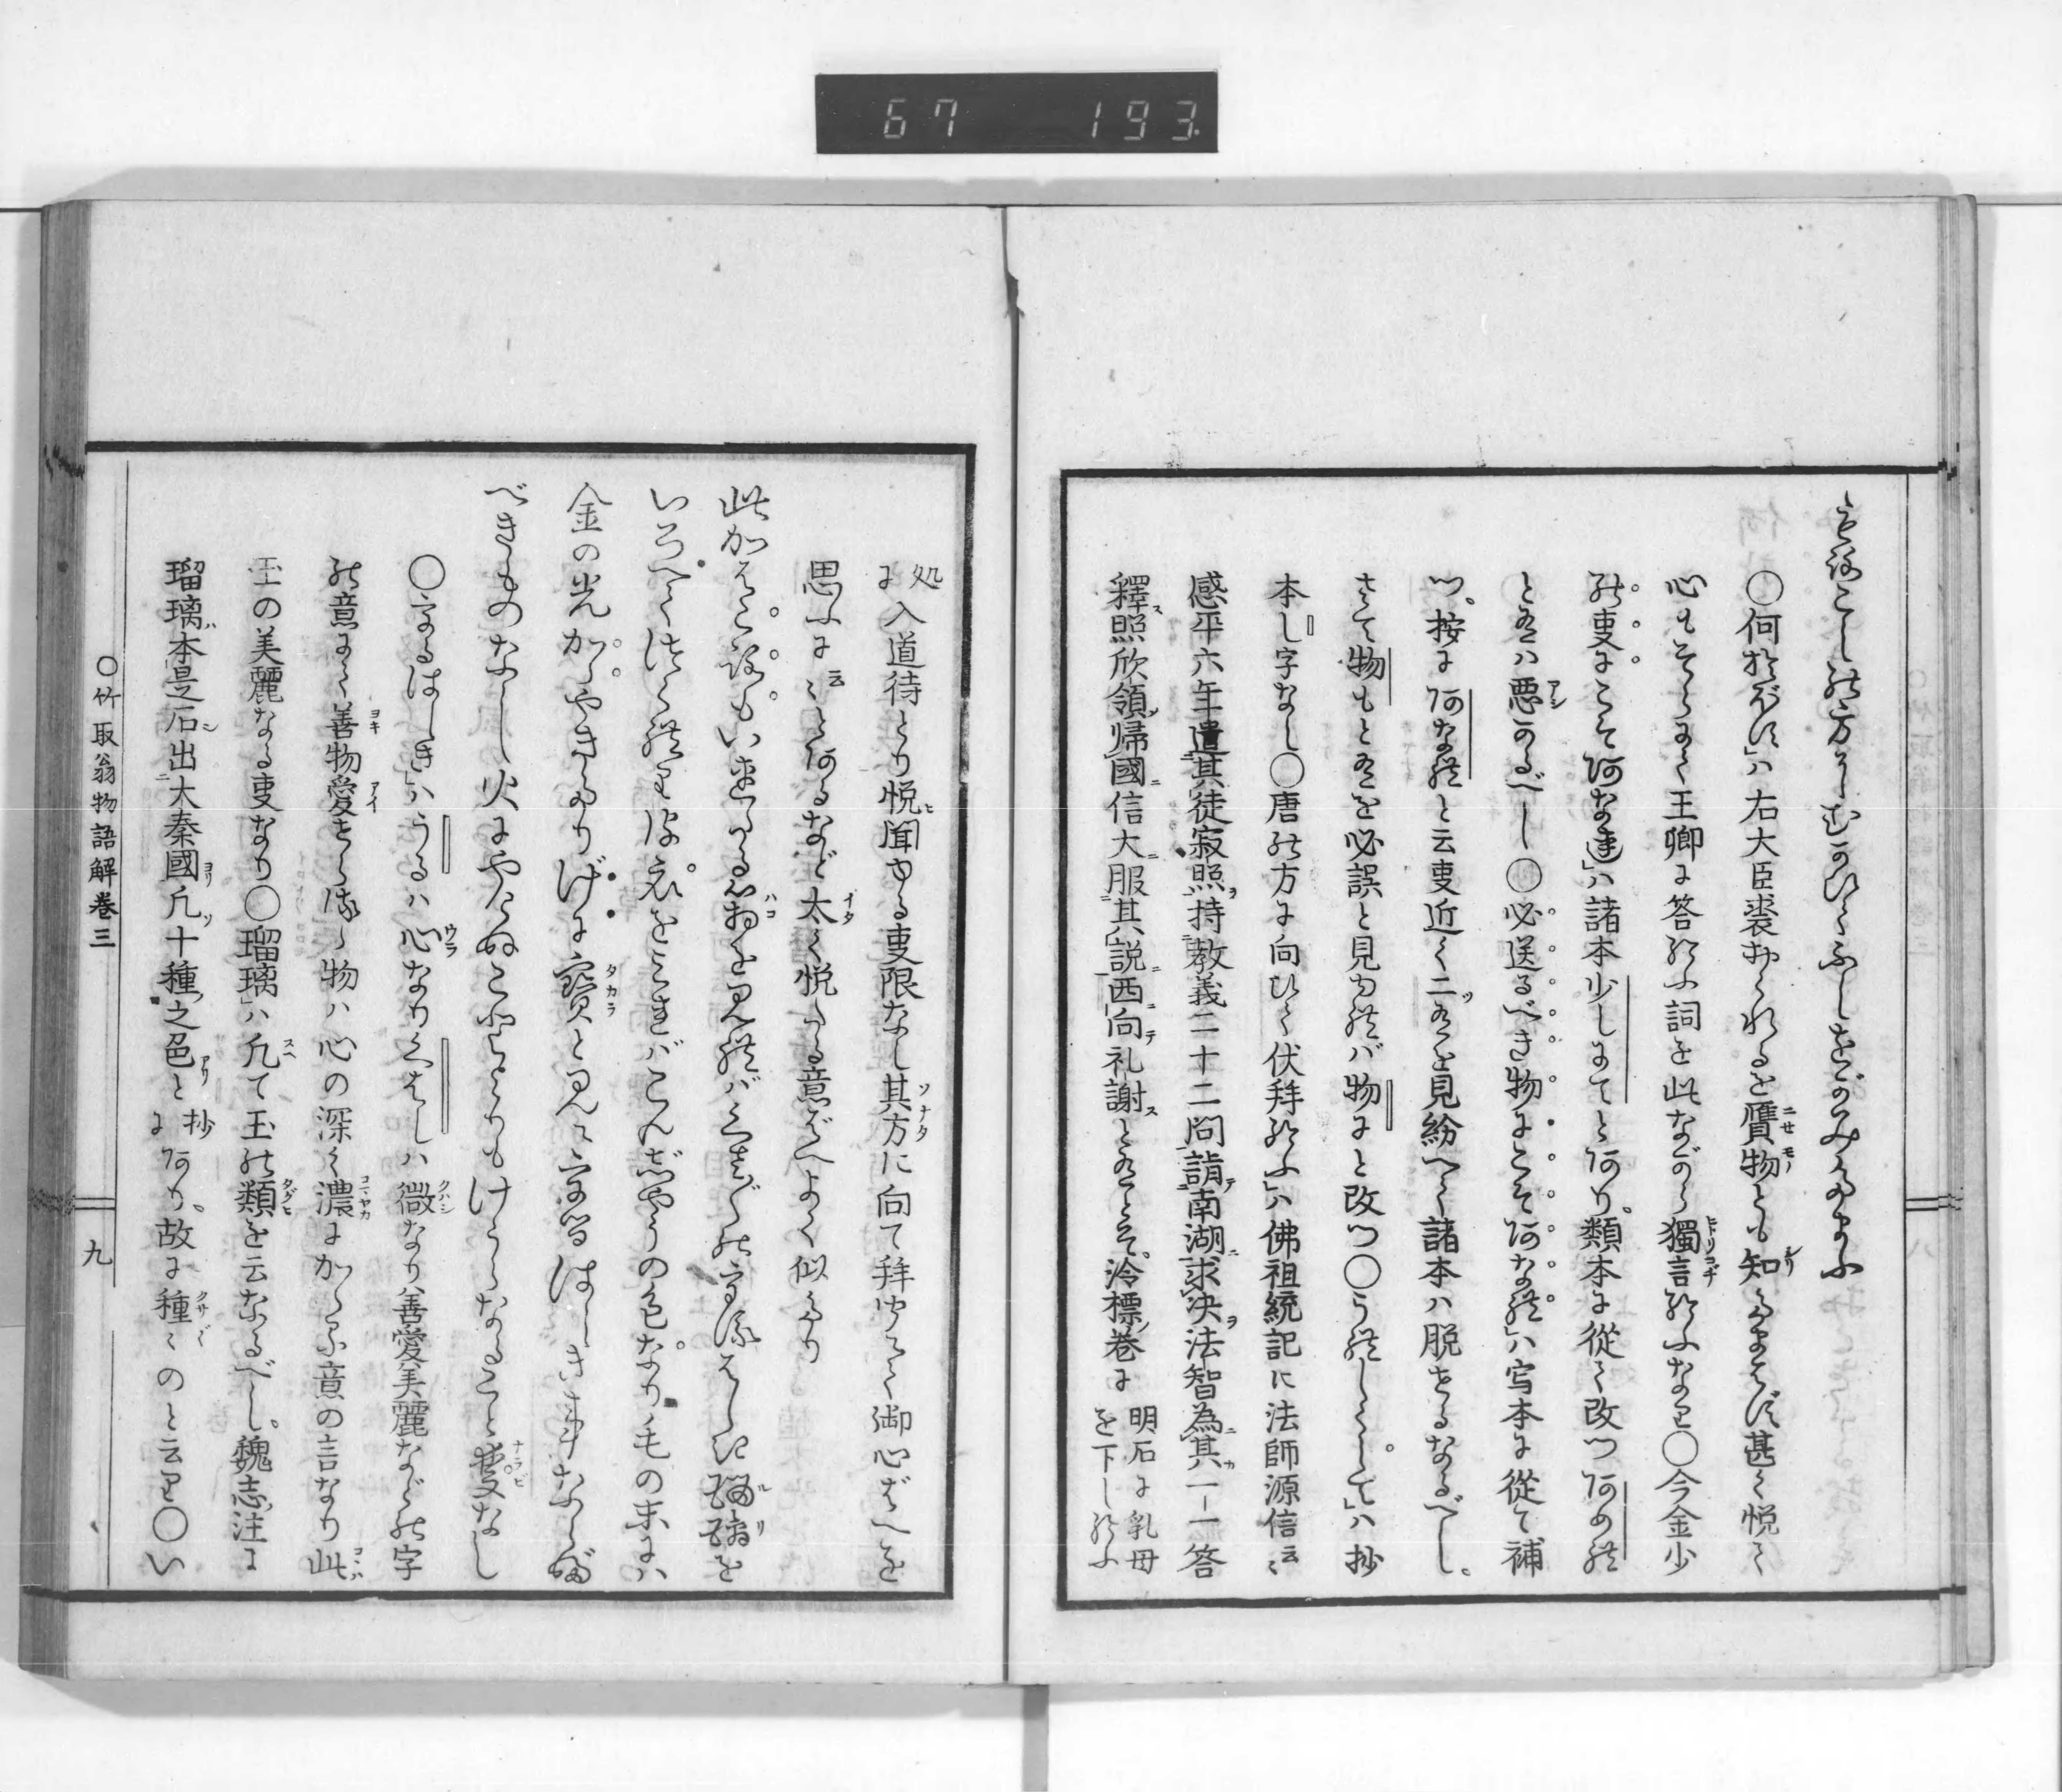 もろこしの方にむかひてふしをがみたまふ
○何おぼす」ハ右大臣裘おくれるを贋物とも知たまはず甚く悦て
心もそらにて王卿に答給ふ詞を此ながら獨言給ふなり○今金少
の叓にこそあなれ」ハ諸本少しにてとあり。類本に從て改つあめれ
とあるハ悪かるべし○必送るべき物にこそあなれ」ハ写本に從て補
つ。按にあなれと云叓近く二ツあるを見紛へて諸本ハ脱せるなるべし。
さて物もとあるを必誤と見ゆれバ物にと改つ○うれしくして」ハ抄
本し字なし○唐の方に向ひて伏拝給ふ」ハ佛祖統記に法師源信云〻
感平六年遣其徒寂照持教義二十二問詣南湖求决法智為其一一答
釋照欣領帰國信大服其説西向礼謝とあるとぞ。泠標巻に明石に乳母を下し給ふ
処に入道待とり悦聞ゆる叓限なし其方に向て拝
御心ばへを
思ふに云〻とあるなど太く悦たる意ばへよく似たり
此かはころもいれたる箱を見れバくさ〴〵のうるはしき瑠璃を
いろへてつくれりかは衣をみればこんじやうの色なり毛の末にハ
金の光かゝやきたりげに寳と見えうるはしき事ならぶ
べきものなし火にやけぬことよりもけうらなること雙なし
○うるはしき」ハうるハ心なりくはしハ微なり善愛美麗などの字
の意にて善物愛
物ハ心の深く濃にかよふ意の言なり此ハ
玉の美麗なる叓なり○瑠璃」ハ凡て玉の類を云なるべし。魏志注に
瑠璃本是石出大秦國凡十種之色と抄にあり。故に種〻のと云り○い
○竹取翁物語解巻三
九
67 193